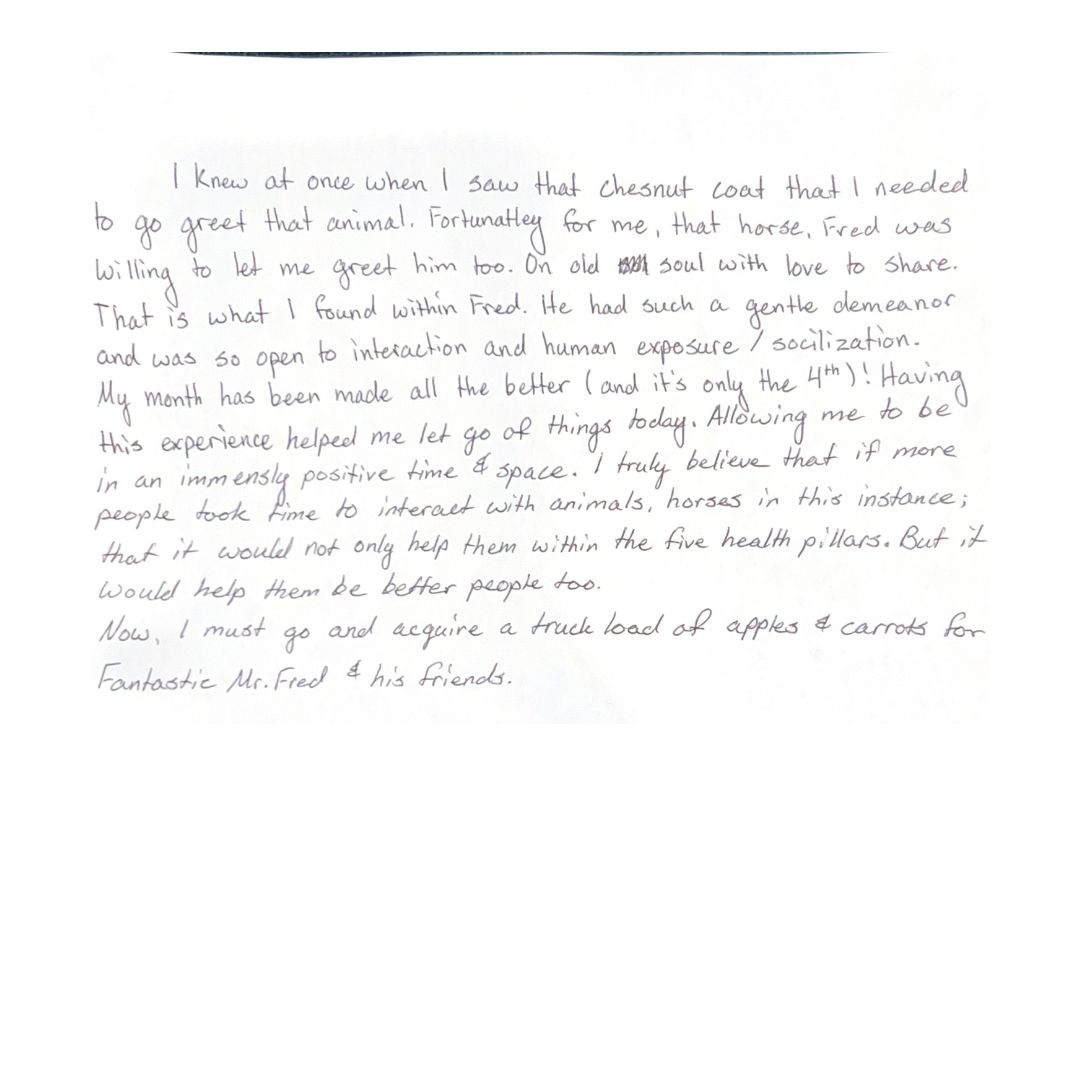 I knew at once when I saw that chesnut coat that I needed
to go greet that animal. Fortunatley for me, that horse, Fred was
willing to let me greet him too. On old soul with love to share.
That is what I found within Fred. He had such a gentle demeanor
and was so open to interaction and human exposure / socilization.
My month has been made all the better (and it's only the 4th)! Having
this experience helped me let go of things today. Allowing me to be
in an immensly positive time & space. I truly believe that if more
people took time to interact with animals, horses in this instance;
that it would not only help them within the five health pillars. But it
would help them be better people too.
Now, I must go and acquire a truck load of apples & carrots for
Fantastic Mr. Fred & his friends.